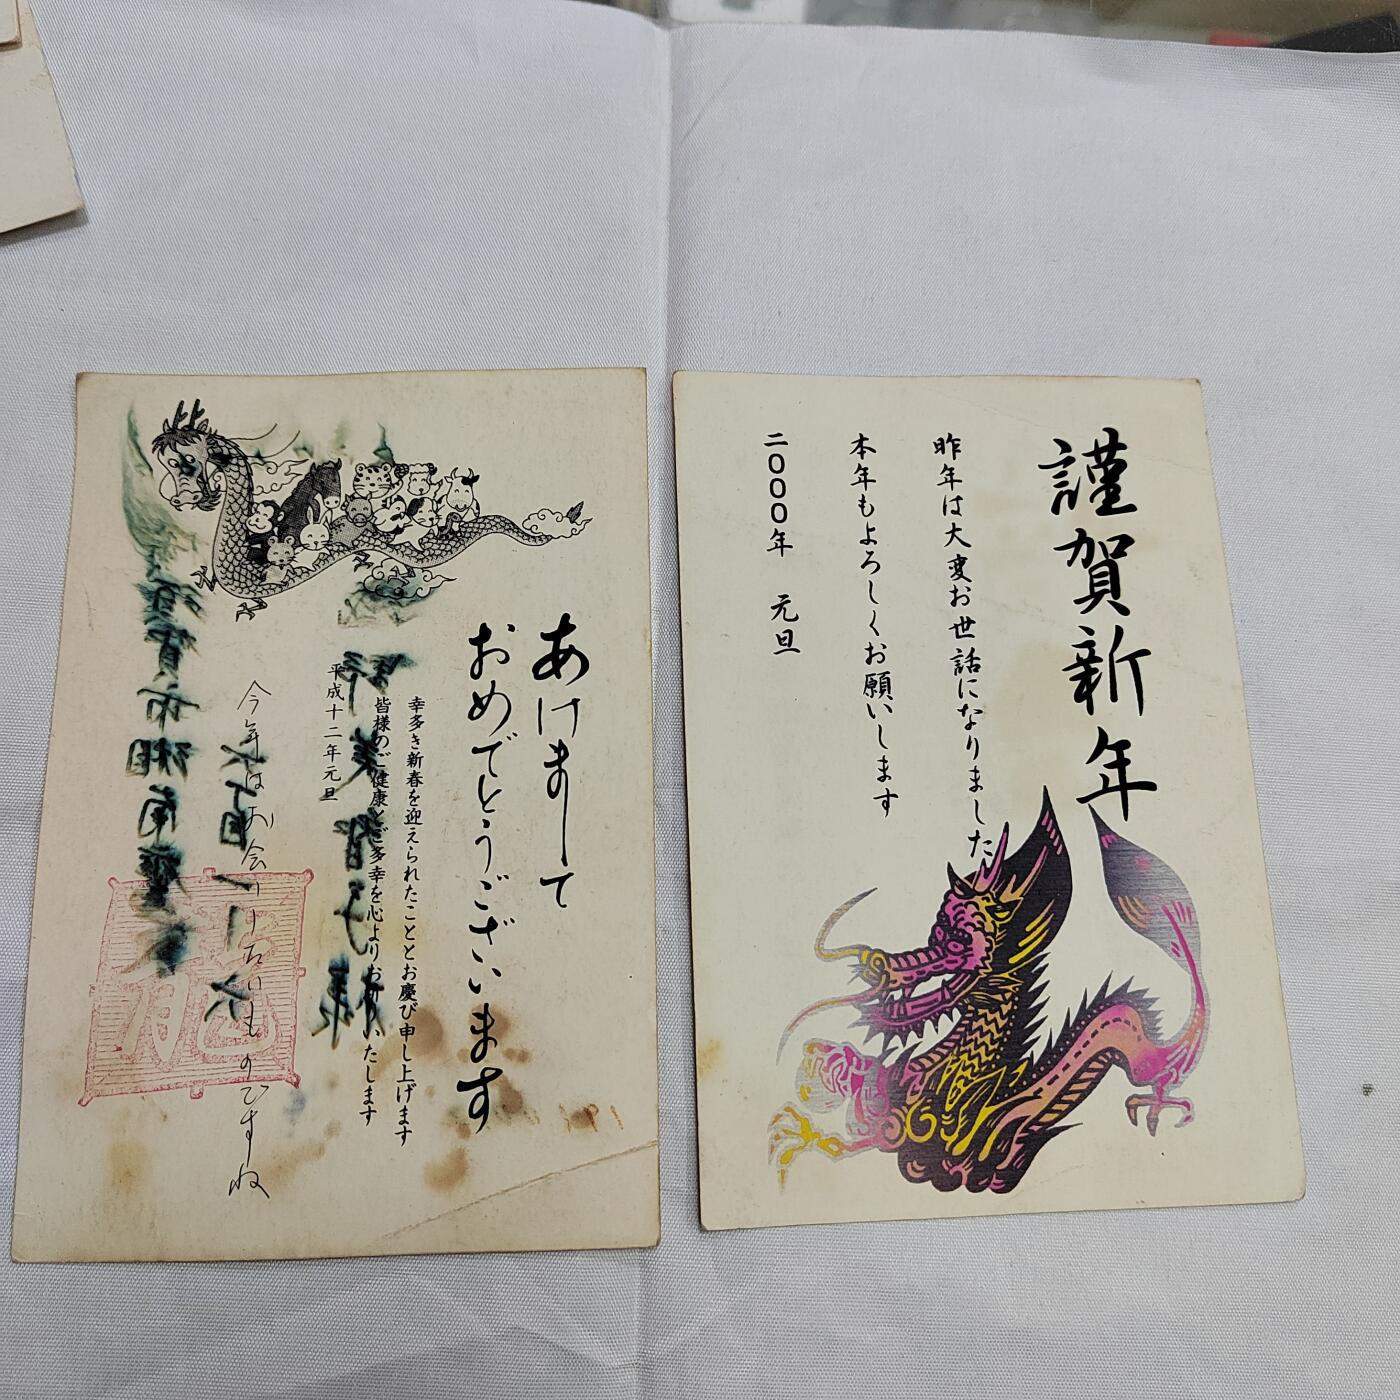 あけまして
おめでとうございます
幸多き新春を迎えられたこととお慶び申し上げます
皆様のご健康とご多幸を心よりお祈りいたします
平成十二年元旦
今年はお会いしたいものですね
謹賀新年
昨年は大変お世話になりました
本年もよろしくお願いします
二〇〇〇年 元旦